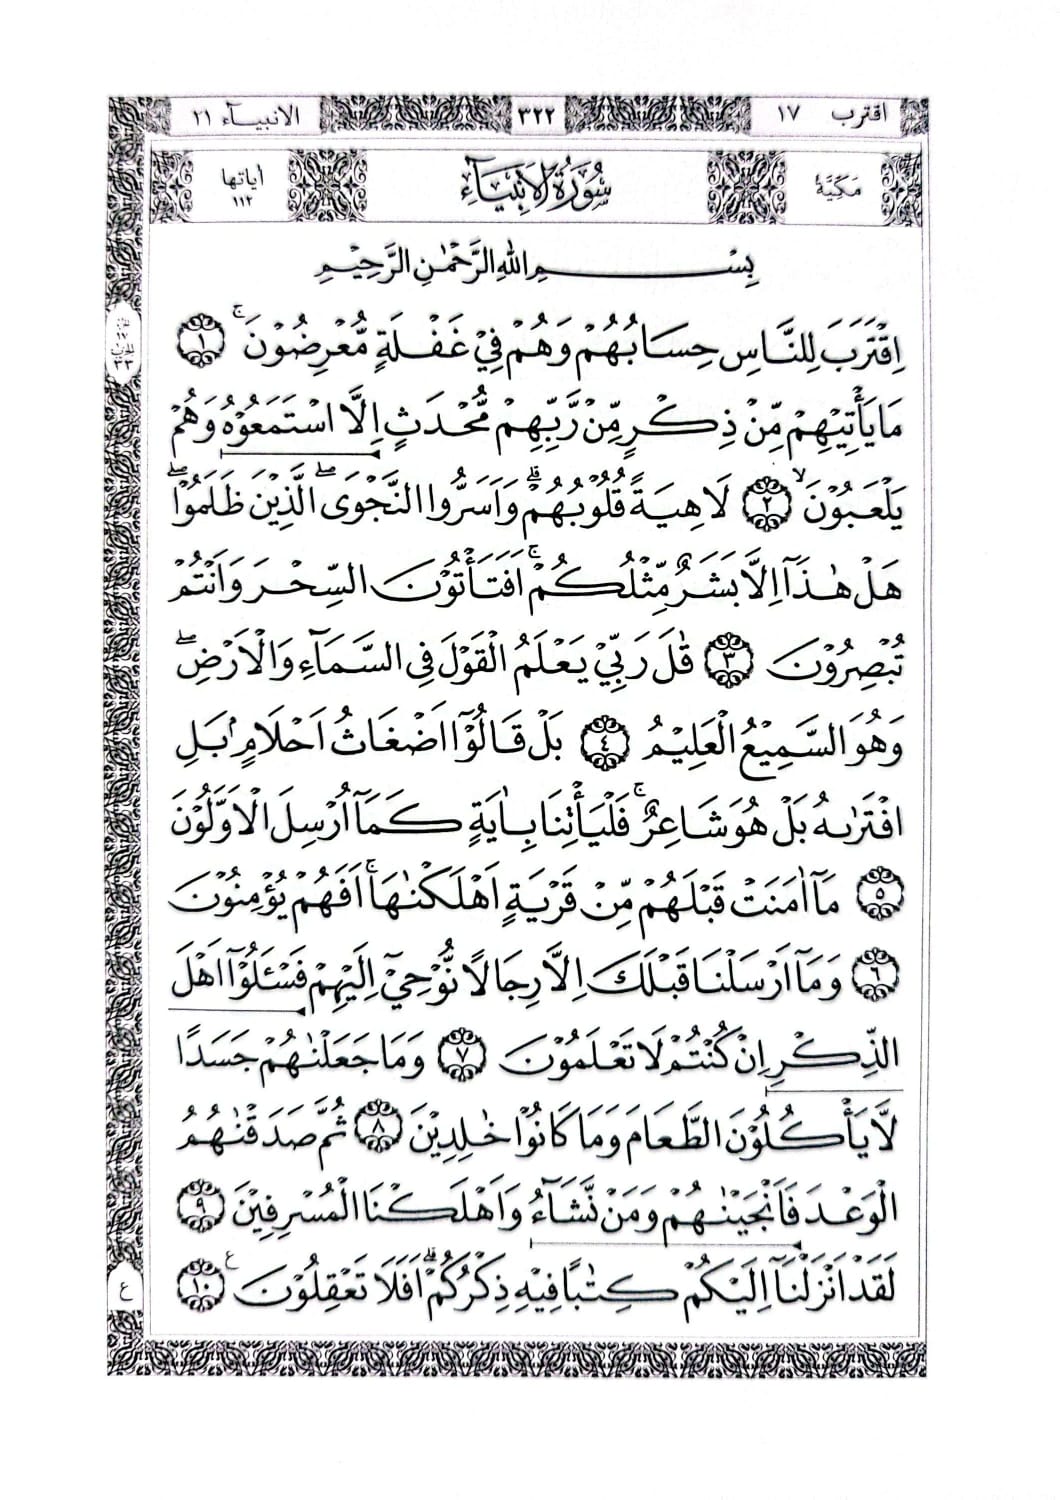 اقترب ١٧
٣٢٢
الانبيآء ٢١
مَكِّيَّةٌ
سُورَةُ الْاَنْبِيَآءِ
اٰياتها ١١٢
بِسْمِ اللّٰهِ الرَّحْمٰنِ الرَّحِيْمِ
اِقْتَرَبَ لِلنَّاسِ حِسَابُهُمْ وَهُمْ فِيْ غَفْلَةٍ مُّعْرِضُوْنَ ۚ ١
مَا يَأْتِيْهِمْ مِّنْ ذِكْرٍ مِّنْ رَّبِّهِمْ مُّحْدَثٍ اِلَّا اسْتَمَعُوْهُ وَهُمْ
يَلْعَبُوْنَ ۙ ٢ لَاهِيَةً قُلُوْبُهُمْ ۗ وَاَسَرُّوا النَّجْوَى ۖ الَّذِيْنَ ظَلَمُوْا ۖ
هَلْ هٰذَآ اِلَّا بَشَرٌ مِّثْلُكُمْ ۚ اَفَتَأْتُوْنَ السِّحْرَ وَاَنْتُمْ
تُبْصِرُوْنَ ٣ قٰلَ رَبِّيْ يَعْلَمُ الْقَوْلَ فِى السَّمَآءِ وَالْاَرْضِ ۖ
وَهُوَ السَّمِيْعُ الْعَلِيْمُ ٤ بَلْ قَالُوْٓا اَضْغَاثُ اَحْلَامٍۢ بَلِ
افْتَرٰىهُ بَلْ هُوَ شَاعِرٌ ۚ فَلْيَأْتِنَا بِاٰيَةٍ كَمَآ اُرْسِلَ الْاَوَّلُوْنَ
٥ مَآ اٰمَنَتْ قَبْلَهُمْ مِّنْ قَرْيَةٍ اَهْلَكْنٰهَا ۚ اَفَهُمْ يُؤْمِنُوْنَ
٦ وَمَآ اَرْسَلْنَا قَبْلَكَ اِلَّا رِجَالًا نُّوْحِيْٓ اِلَيْهِمْ فَسْـَٔلُوْٓا اَهْلَ
الذِّكْرِ اِنْ كُنْتُمْ لَا تَعْلَمُوْنَ ٧ وَمَا جَعَلْنٰهُمْ جَسَدًا
لَّا يَأْكُلُوْنَ الطَّعَامَ وَمَا كَانُوْا خٰلِدِيْنَ ٨ ثُمَّ صَدَقْنٰهُمُ
الْوَعْدَ فَاَنْجَيْنٰهُمْ وَمَنْ نَّشَآءُ وَاَهْلَكْنَا الْمُسْرِفِيْنَ ٩
لَقَدْ اَنْزَلْنَآ اِلَيْكُمْ كِتٰبًا فِيْهِ ذِكْرُكُمْ ۗ اَفَلَا تَعْقِلُوْنَ ع ١٠
ع